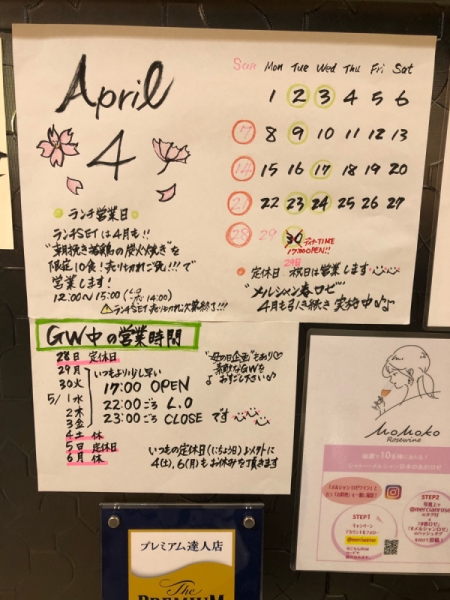 April
4
Sun Mon Tue Wed Thu Fri Sat
1 2 3 4 5 6
7 8 9 10 11 12 13
14 15 16 17 18 19 20
21 22 23 24 25 26 27
28 29 30
17:00 OPEN!!
ランチ営業日
ランチSETは4月も!!
"朝挽き若鶏の炭火焼き"を
限定10食!売り切れご免!!!で
営業します!
12:00〜15:00 (L.O 14:00)
29日
定休日 祝日は営業します
"メルシャン春ロゼ"
4月も引き続き実施中♪
GW中の営業時間
28日 定休日
29月
30火
5/1水
2木
3金
4土 休
5日 定休日
6月 休
いつもより少し早い
17:00 OPEN
22:00ごろ L.O
23:00ごろ CLOSE です
"母の日企画"もあり♡
素敵なGWを
おすごし下さい♪
いつもの定休日(にちよう)以外に
4(土),6(月)もお休みを頂きます
Momoko
Rosewine
STEP1
STEP2
@mercianrose
プレミアム達人店
The
PREMIUM